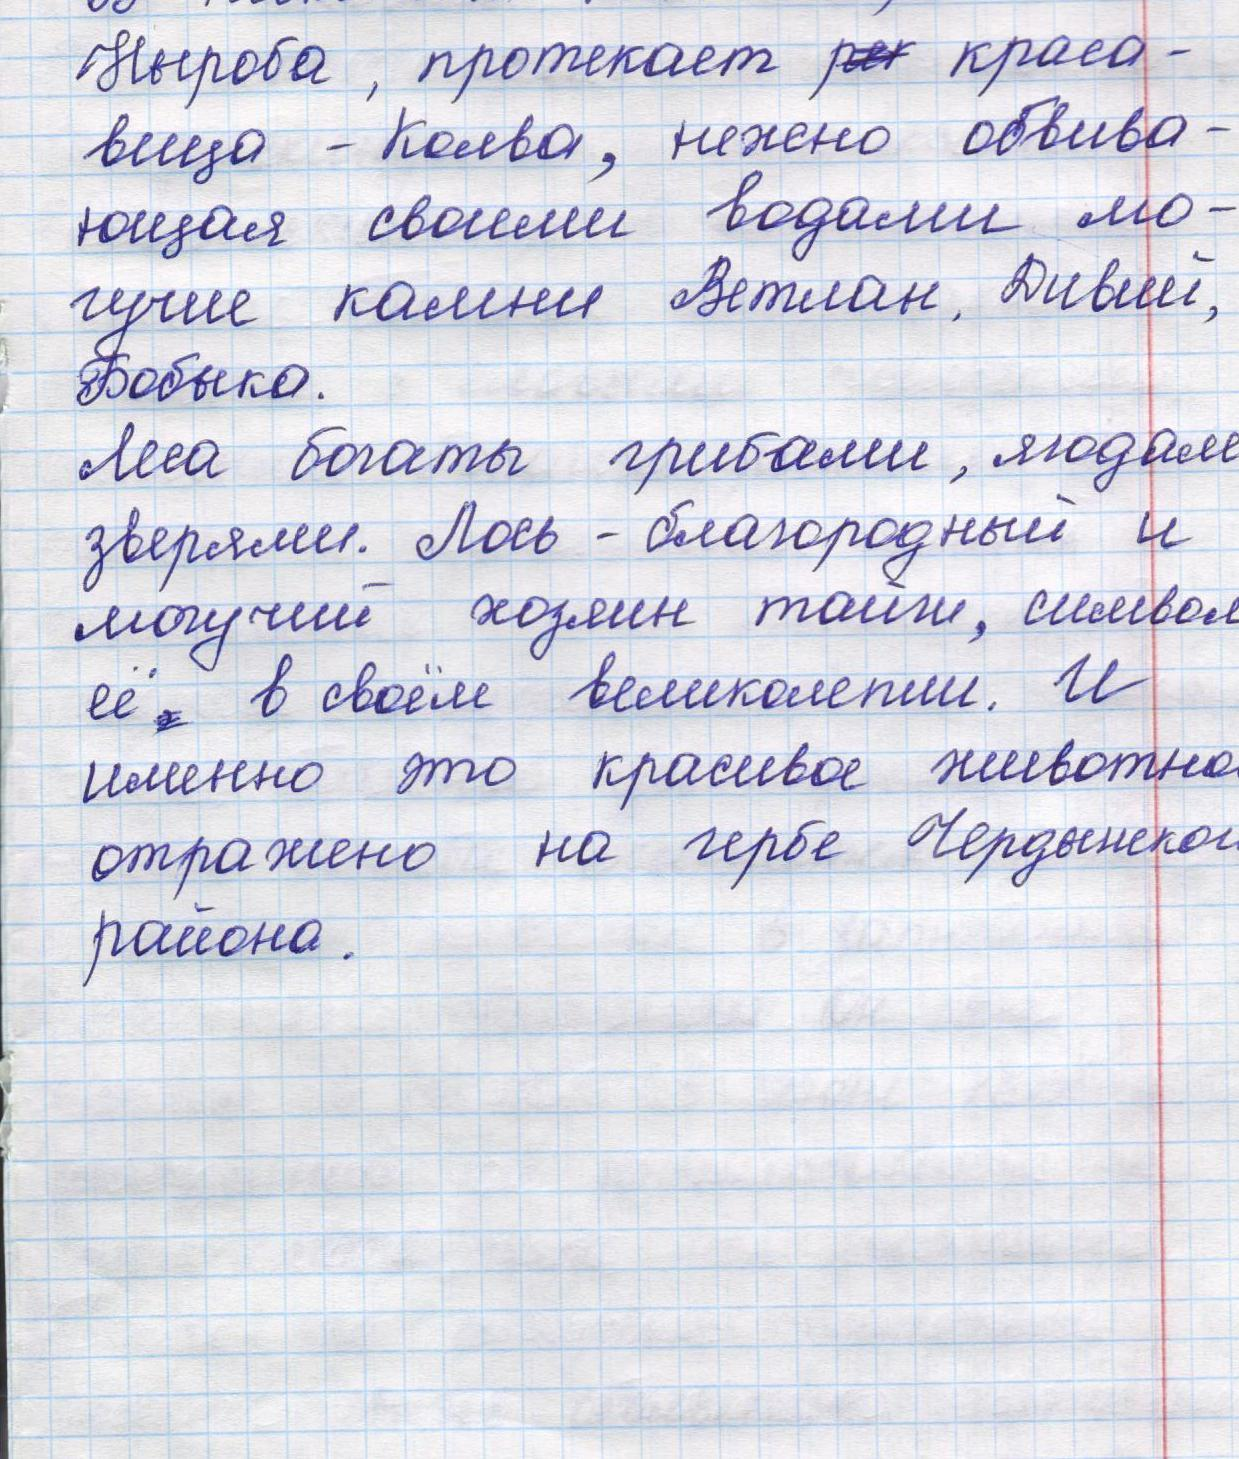 Ныроба, протекает краса-
вица - Колва, нежно обвива-
ющая своими водами мо-
гучие камни Ветлан, Дивий,
Бобыка.
Леса богаты грибами, ягодами
зверями. Лось - благородный и
могучий хозяин тайги, символ
её, в своём великолепии. И
именно это красивое животно
отражено на гербе Чердынског
района.